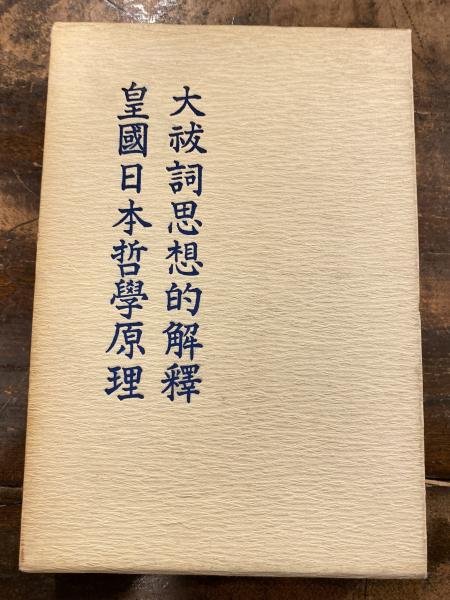 大祓詞思想的解釋
皇國日本哲學原理